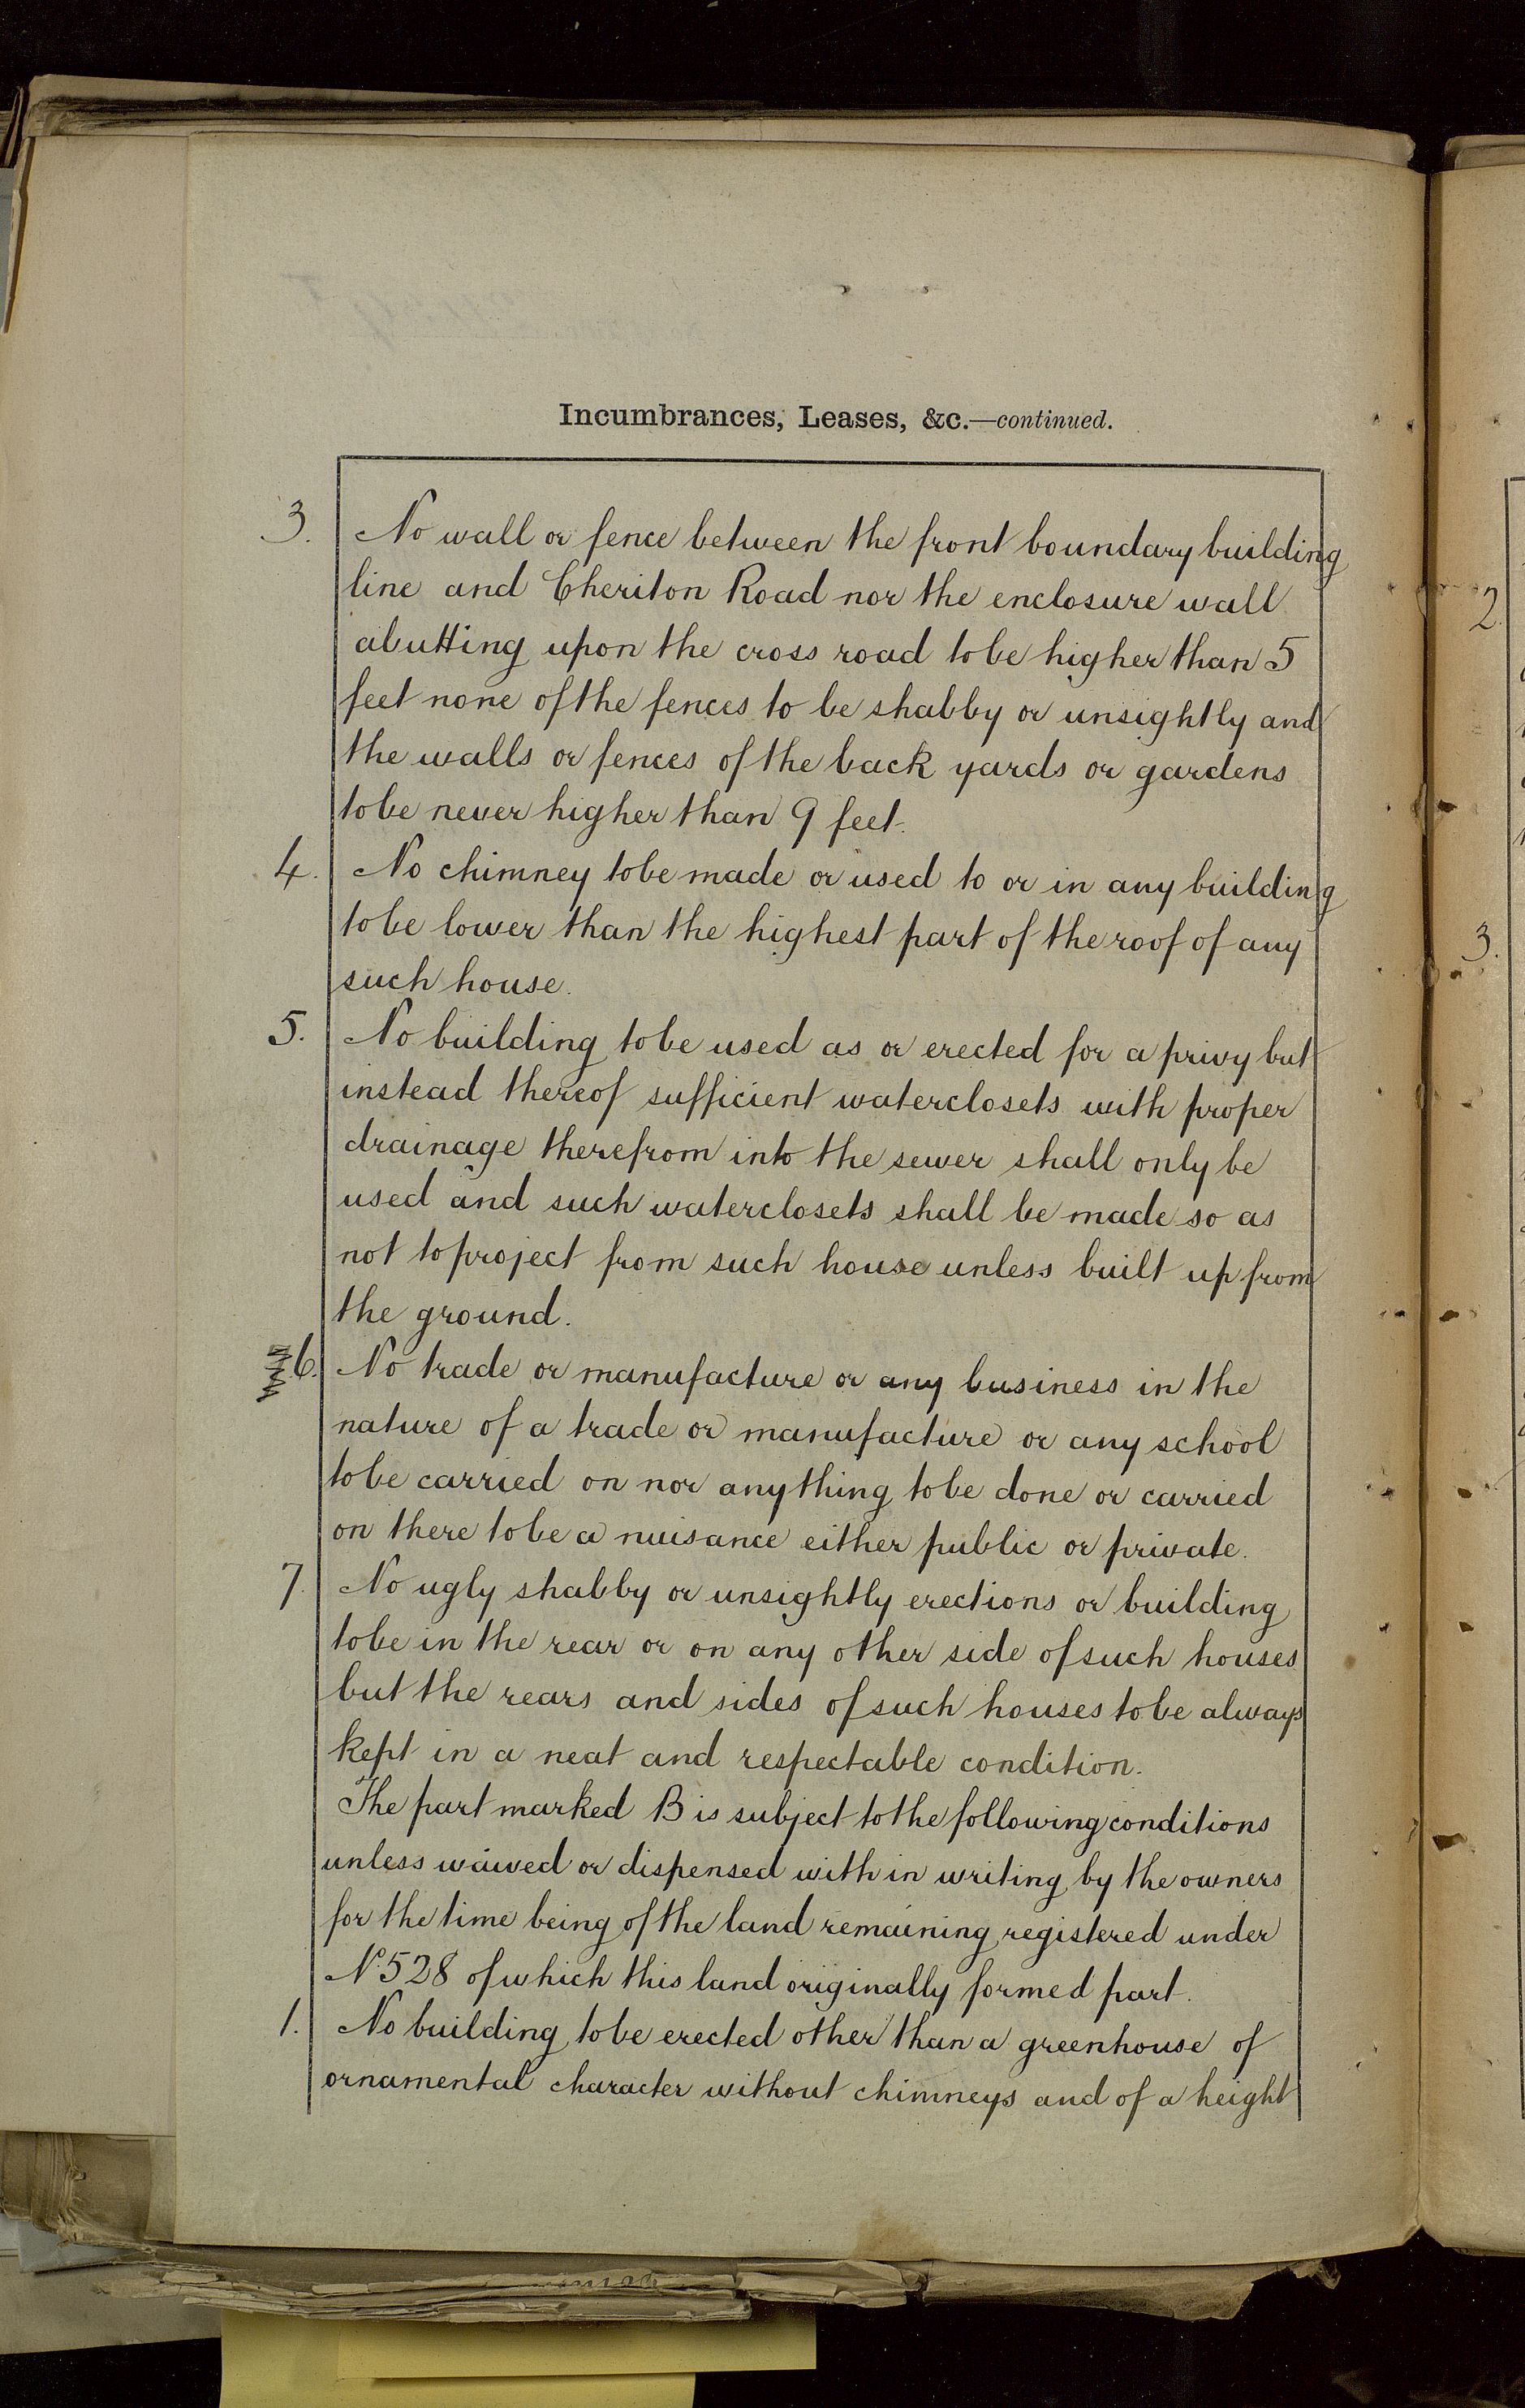 Incumbrances, Leases, &c.—continued.
3. No wall or fence between the front boundary building
line and Cheriton Road nor the enclosure wall
abutting upon the cross road to be higher than 5
feet none of the fences to be shabby or unsightly and
the walls or fences of the back yards or gardens
to be never higher than 9 feet.
4. No chimney to be made or used to or in any building
to be lower than the highest part of the roof of any
such house.
5. No building to be used as or erected for a privy but
instead thereof sufficient waterclosets with proper
drainage therefrom into the sewer shall only be
used and such waterclosets shall be made so as
not to project from such house unless built up from
the ground.
6. No trade or manufacture or any business in the
nature of a trade or manufacture or any school
to be carried on nor anything to be done or carried
on there to be a nuisance either public or private.
7. No ugly shabby or unsightly erections or building
to be in the rear or on any other side of such houses
but the rears and sides of such houses to be always
kept in a neat and respectable condition.
The part marked B is subject to the following conditions
unless waived or dispensed with in writing by the owners
for the time being of the land remaining registered under
No 528 of which this land originally formed part.
1. No building to be erected other than a greenhouse of
ornamental character without chimneys and of a height
2.
3.